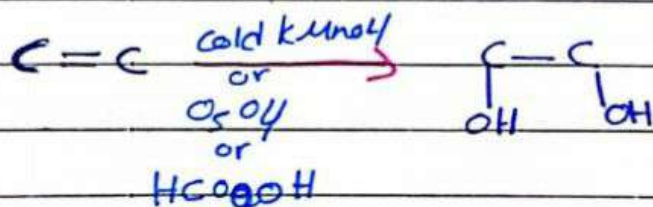 C = C cold KMnO4 C — C
or
OsO4 OH OH
or
HCOOOH